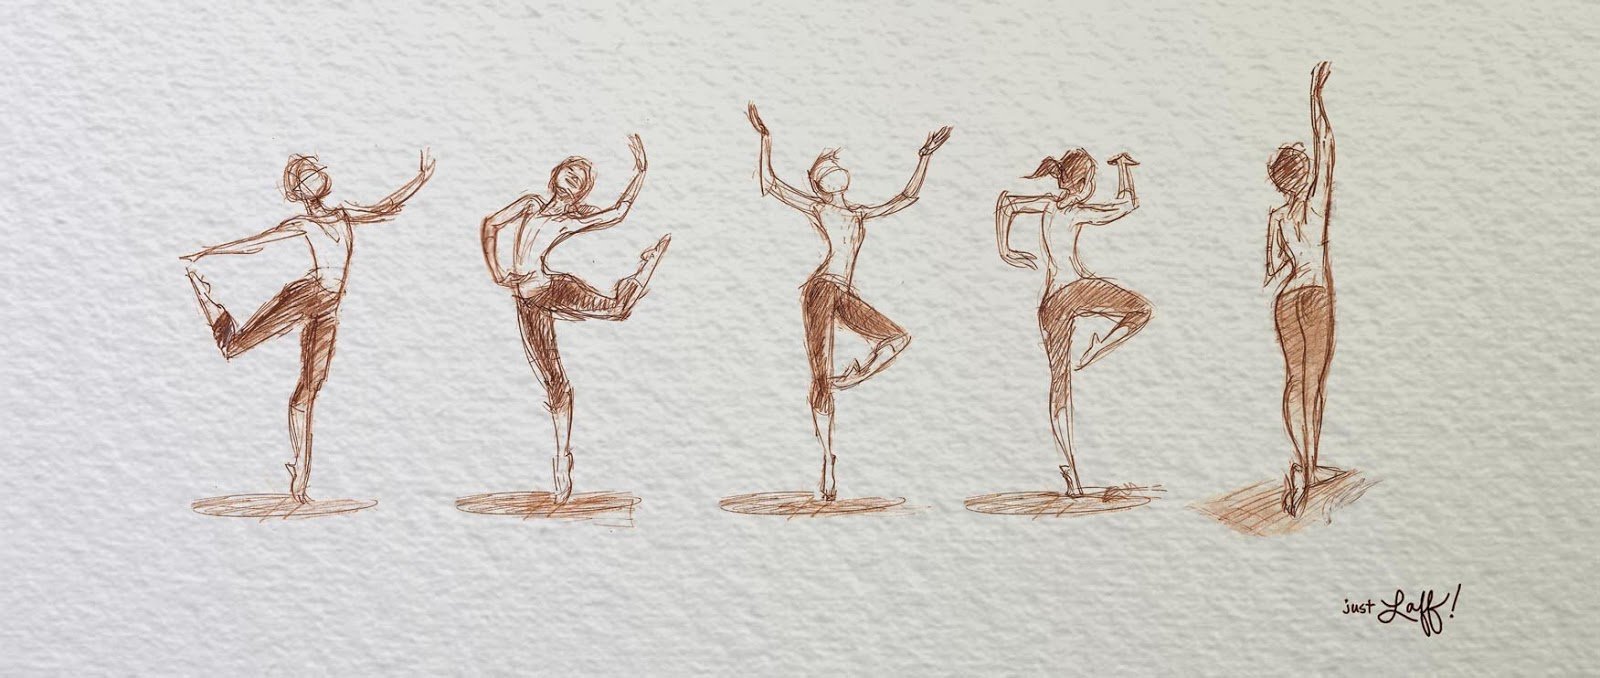 just Laff!